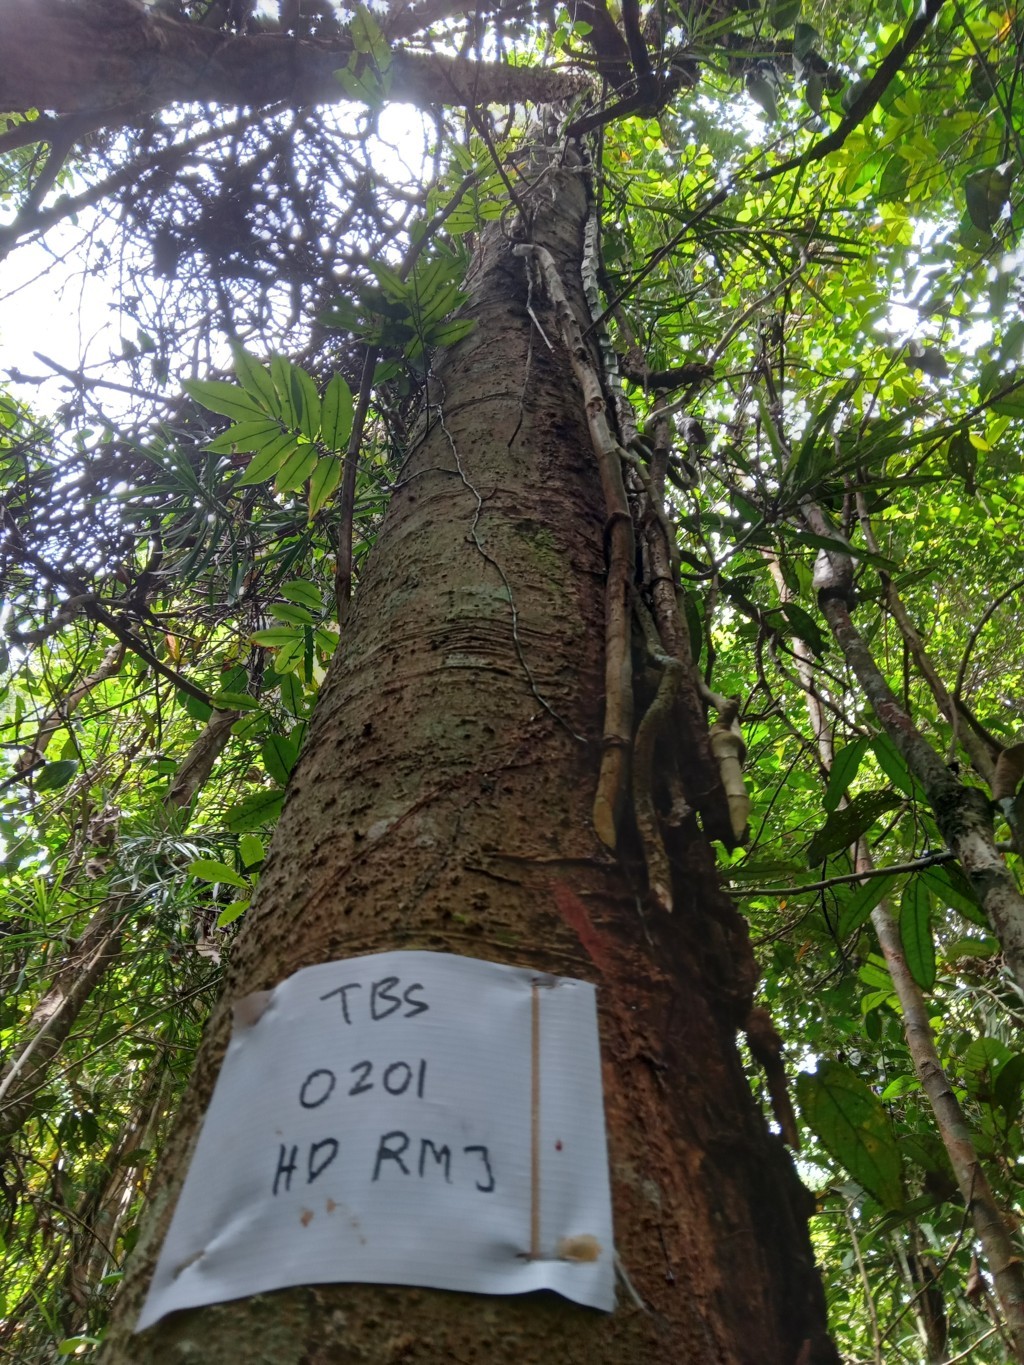 TBS
0201
HD RMJ